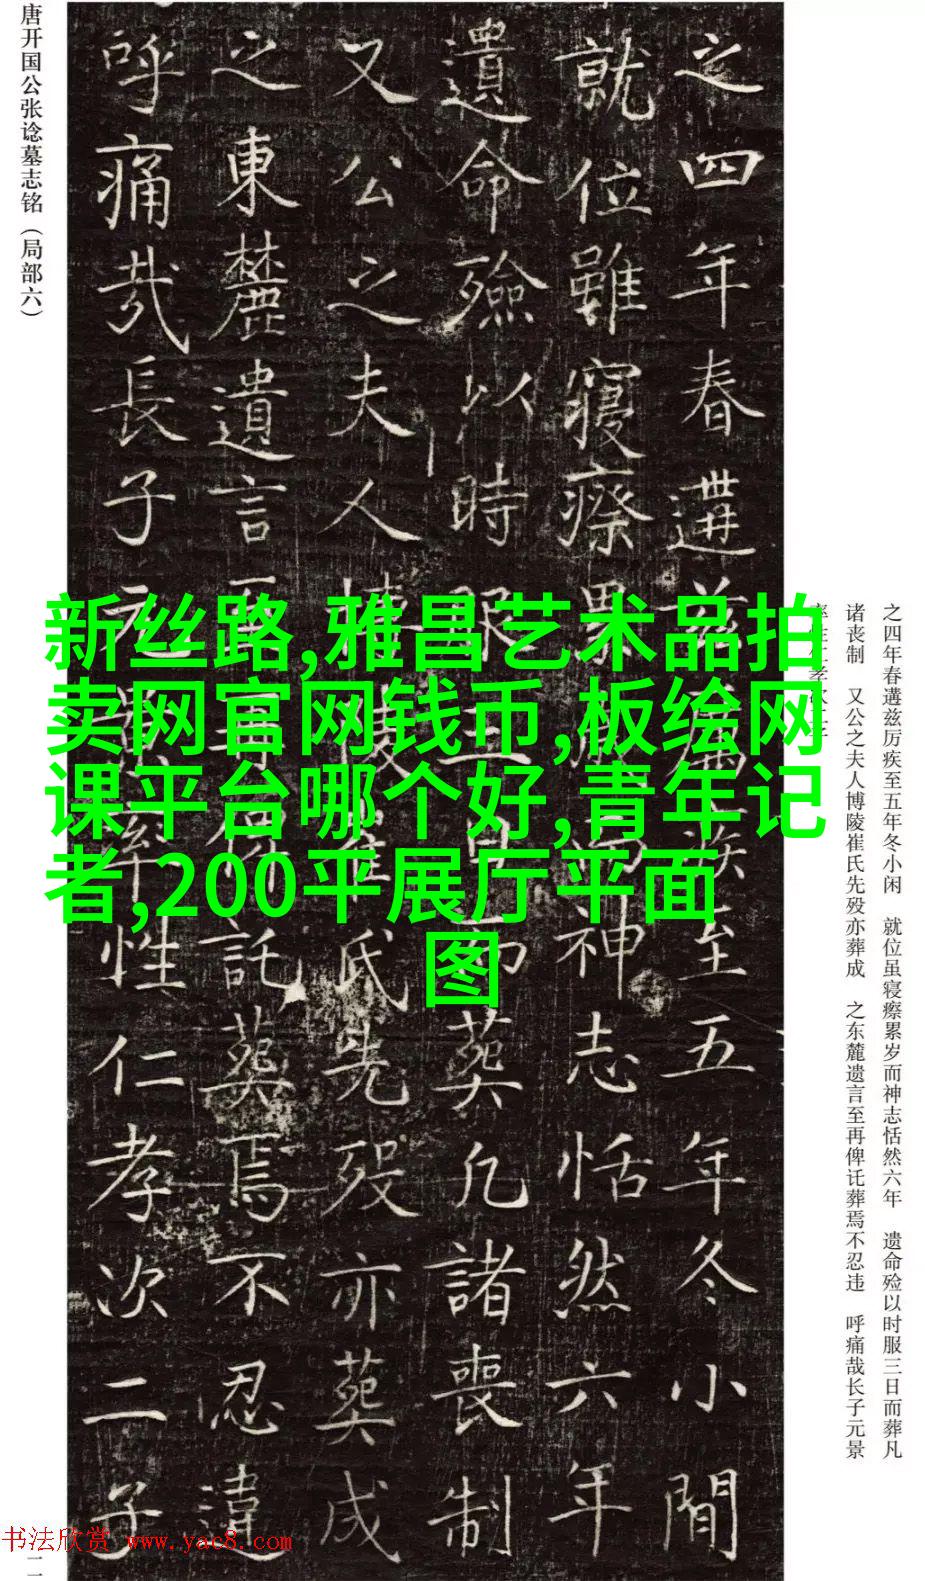 唐开国公张谂墓志铭（局部六）
之四年春遘兹厲疾至五年冬小間
就位雖寢瘵累歲而神志恬然六年
遺命殮以時服三日而葬凡諸喪制
又公之夫人博陵崔氏先歿亦葬成
之東麓遺言至再俾託葬焉不忍違
呼痛哉長子元景率性仁孝次二子
新丝路,雅昌艺术品拍
卖网官网钱币,板绘网
课平台哪个好,青年记
者,200平展厅平面
图
之四年春遘兹厉疾至五年冬小闲 就位虽寝瘵累岁而神志恬然六年 遗命殓以时服三日而葬凡
诸丧制 又公之夫人博陵崔氏先殁亦葬成 之东麓遗言至再俾讬葬焉不忍违 呼痛哉长子元景
书法欣赏 www.yac8.com